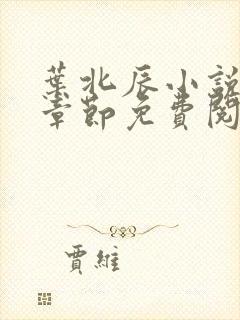 葉北辰小說
章節免費閱
賈維